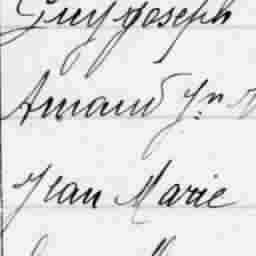 Guy Joseph
Amand Jn
Jean Marie